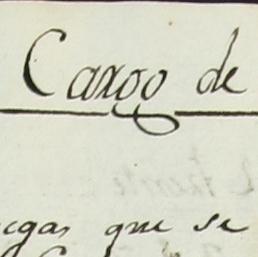 Cargo de
que se